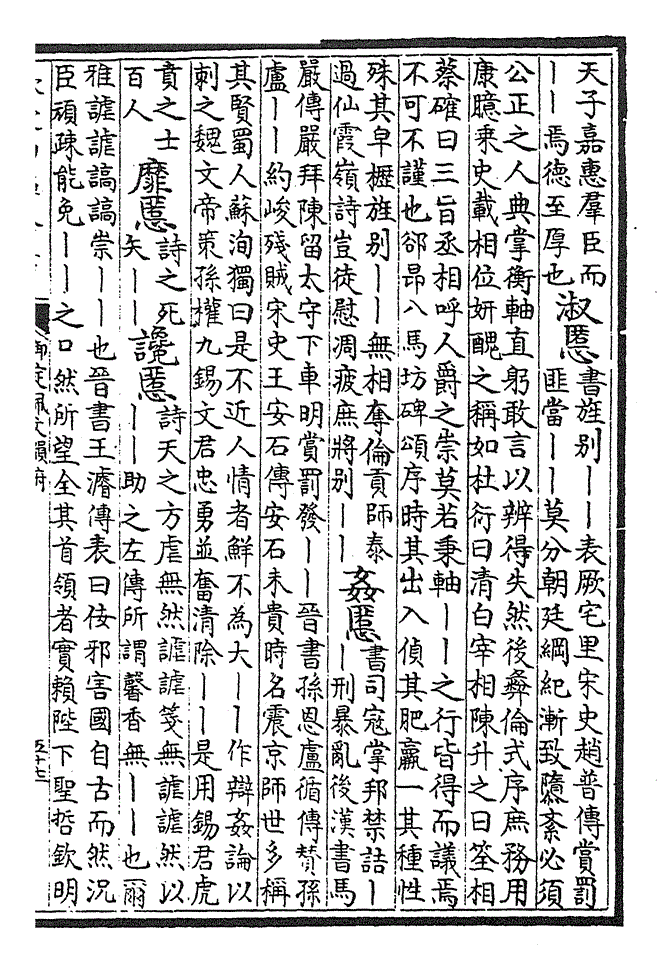 天子嘉惠羣臣而
——焉德至厚也
淑慝
書旌别——表厥宅里宋史趙普傳賞罰
匪當——莫分朝廷綱紀漸致隳紊必須
公正之人典掌衡軸直躬敢言以辨得失然後彝倫式序庶務用
康臆乗史載相位妍醜之稱如杜衍曰清白宰相陳升之曰筌相
蔡確曰三旨丞相呼人爵之崇莫若秉軸——之行皆得而議焉
不可不謹也郤昂八馬坊碑頌序時其出入偵其肥羸一其種性
殊其皁櫪旌别——無相奪倫貢師泰
過仙霞嶺詩豈徒慰凋疲庶將别——
姦慝
書司寇掌邦禁詰—
—刑暴亂後漢書馬
嚴傳嚴拜陳留太守下車明賞罰發——晉書孫恩盧循傳賛孫
盧——約峻殘賊宋史王安石傳安石未貴時名震京師世多稱
其賢蜀人蘇洵獨曰是不近人情者鮮不為大——作辯姦論以
刺之魏文帝策孫權九錫文君忠勇並奮清除——是用錫君虎
賁之士
百人
靡慝
詩之死
矢——
讒慝
詩天之方虐無然謔謔箋無謔謔然以
——助之左傳所謂馨香無——也爾
雅謔謔謞謞崇——也晉書王濬傳表曰佞邪害國自古而然況
臣頑疎能免——之口然所望全其首領者實賴陛下聖哲欽明
御定佩文韻府
五十七